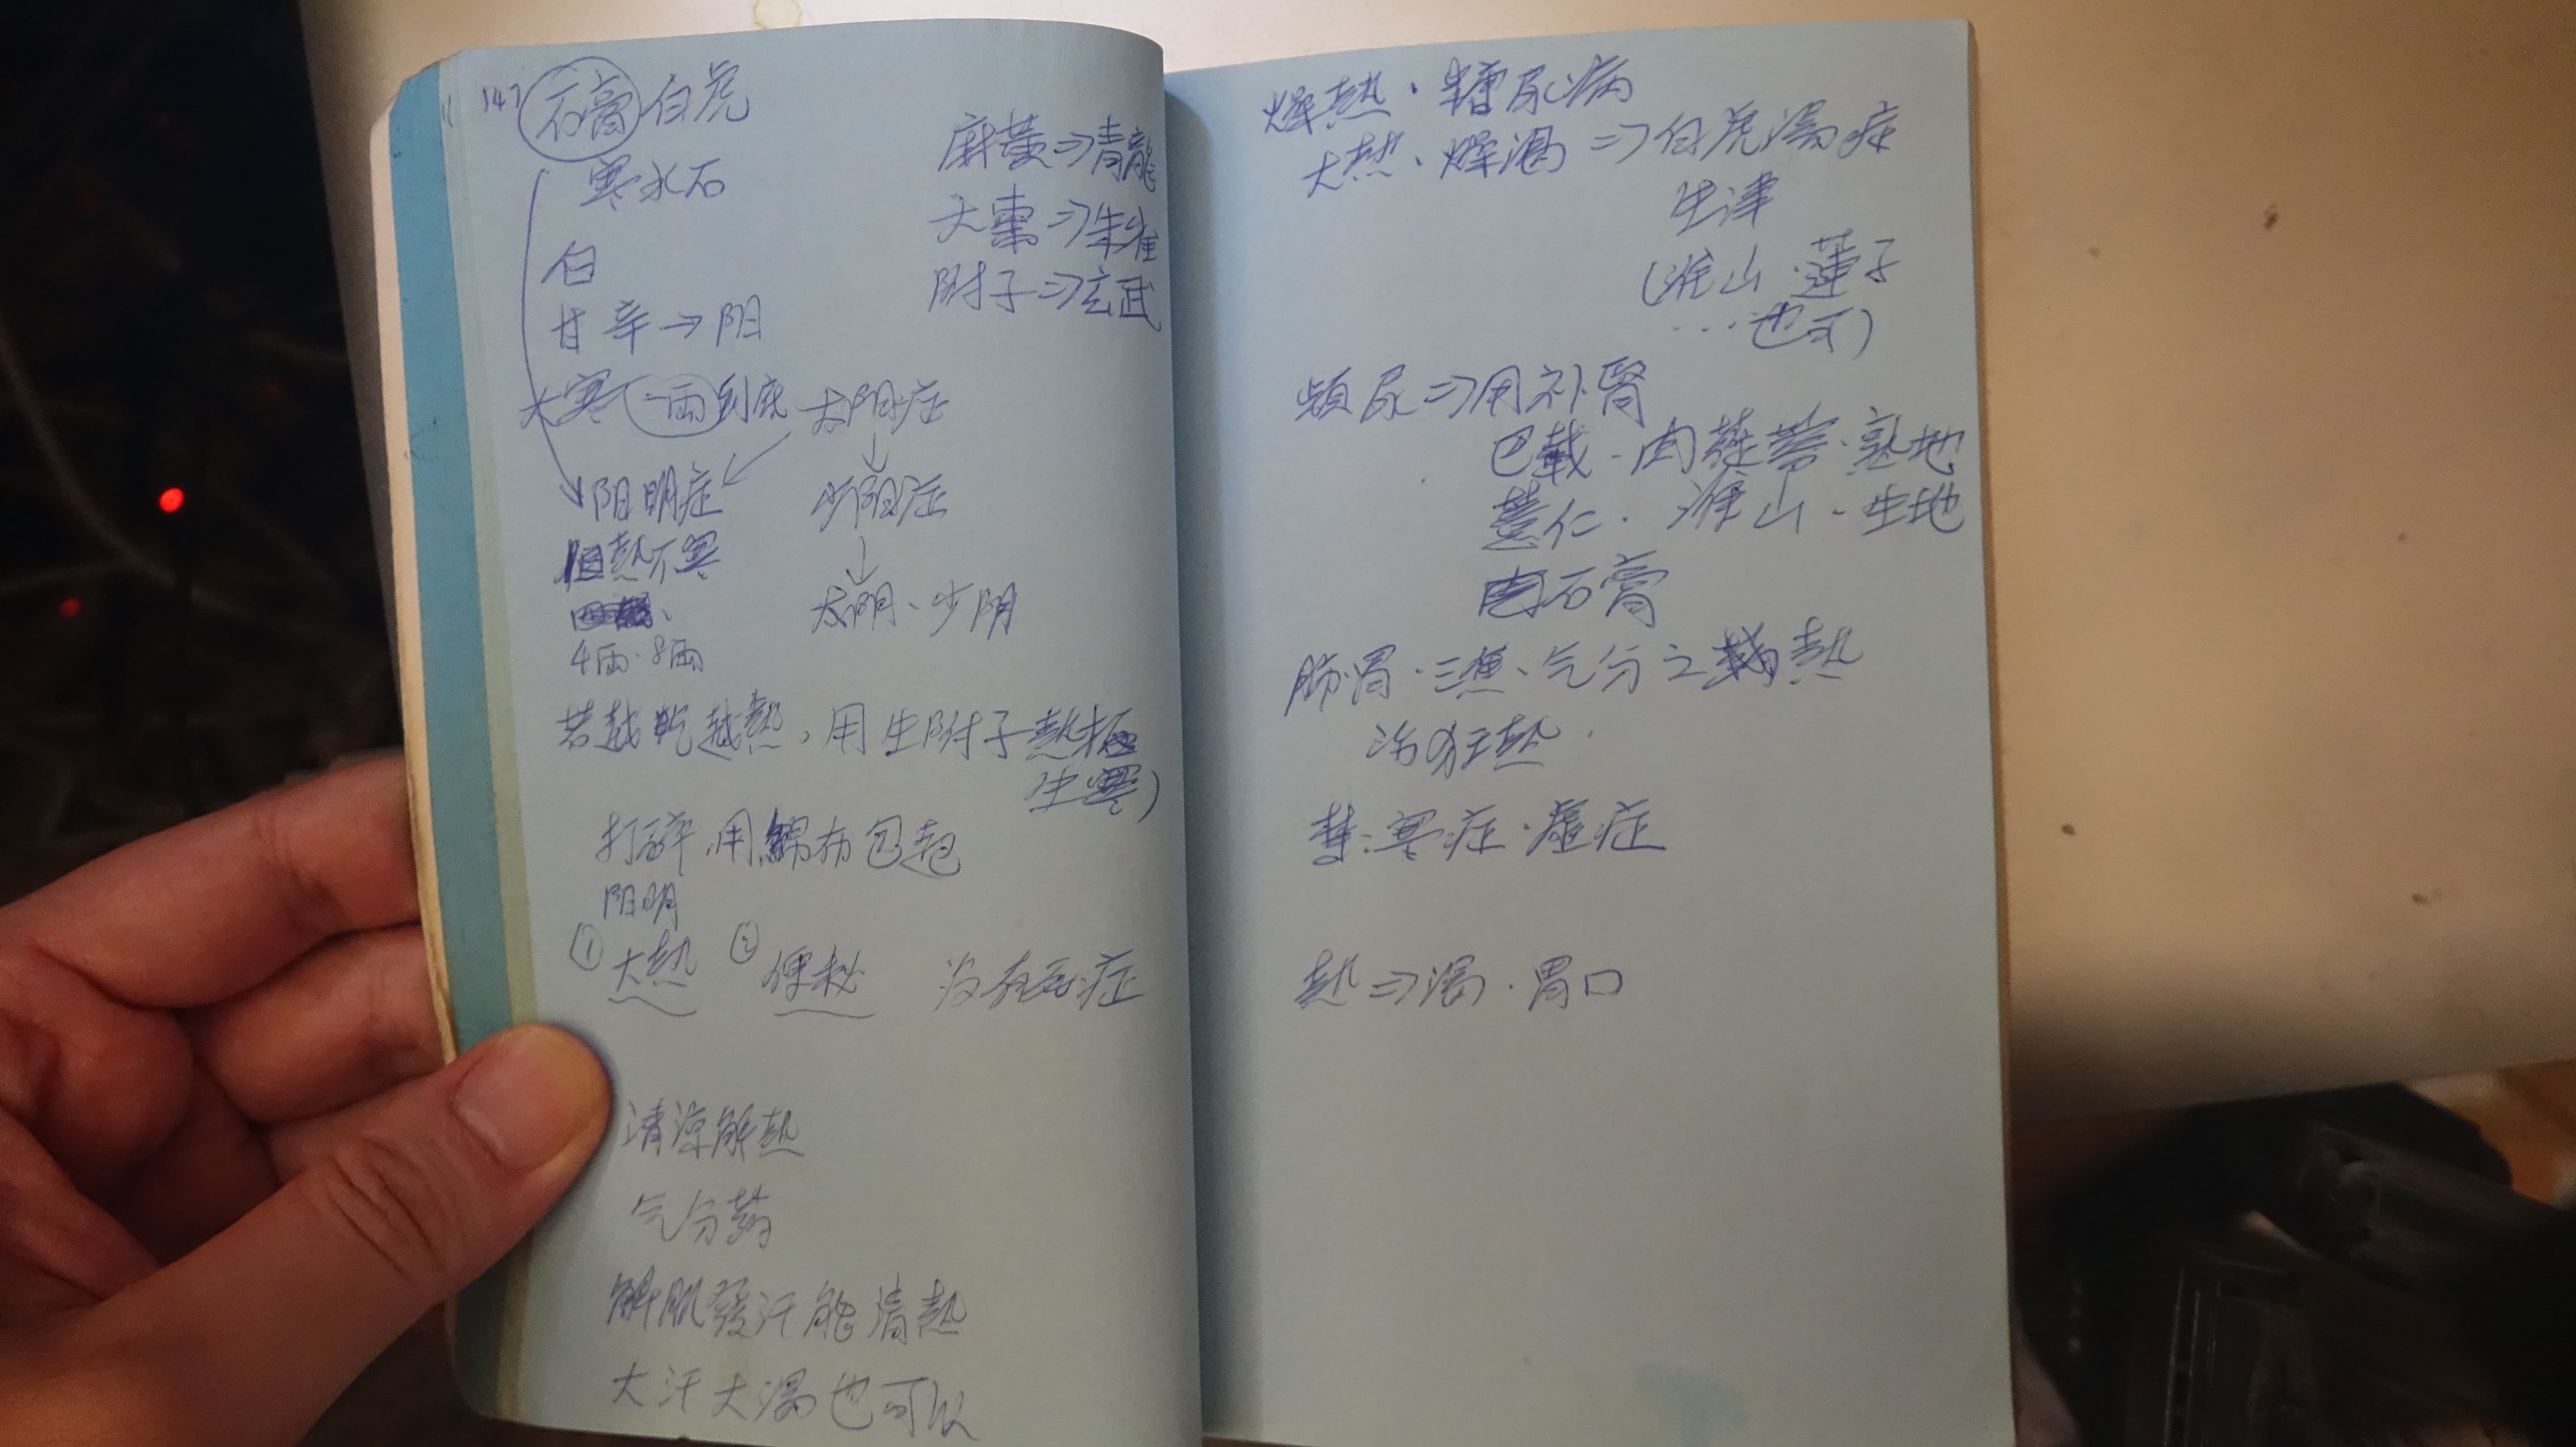 147 石膏 白虎
寒水石
麻黄⇒青龍
大棗⇒朱雀
附子⇒玄武
白
甘辛→阳
大寒 一兩到底
太阳症
↓
少阳症
↓
太阴、少阴
阳明症
但熱不寒
4兩·8兩
若越吃越熱,用生附子 熱極
生寒)
打碎,用綿布包起
阳明
① 大熱 ② 便秘 没有死症
清涼解熱
气分药
解肌發汗能清熱
大汗大渴也可以
燥熱·糖尿病
大熱、燥渴⇒白虎湯症
生津
(淮山·蓮子
...也可)
頻尿⇒用补腎
巴戟·肉蓯蓉·熟地
薏仁·淮山·生地
石膏
肺胃·三焦、气分之熱
治狂熱
禁:寒症·虛症
熱⇒渴·胃口